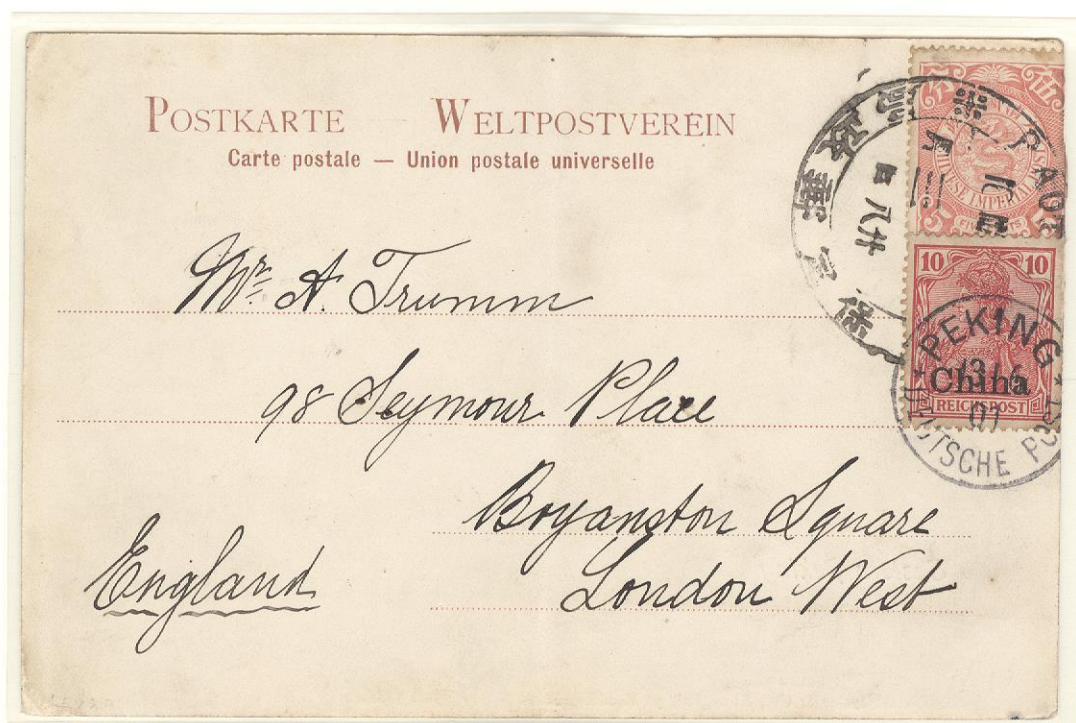 POSTKARTE WELTPOSTVEREIN
Carte postale — Union postale universelle
Mr. A. Trumm
98 Seymour Place
Boyanston Square
London West
England
CHINESE IMPERIAL
5
5
PAOT
10 10
China
REICHSPOST
PEKING
13/6
01
DEUTSCHE POST